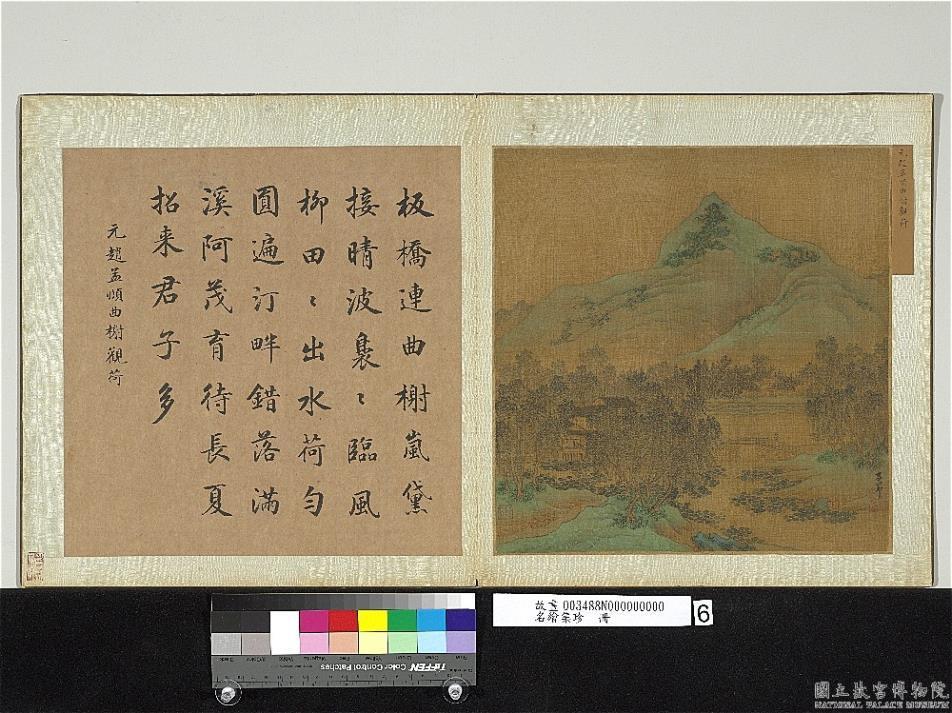 板橋連曲榭嵐黛
接晴波裊〻臨風
柳田〻出水荷勻
圓遍汀畔錯落滿
溪阿茂育待長夏
招来君子多
元趙孟頫曲榭觀荷
故畫003488N000000000
名繪集珍 冊
6
TIFFEN Color Control Patches
國立故宮博物院
NATIONAL PALACE MUSEUM